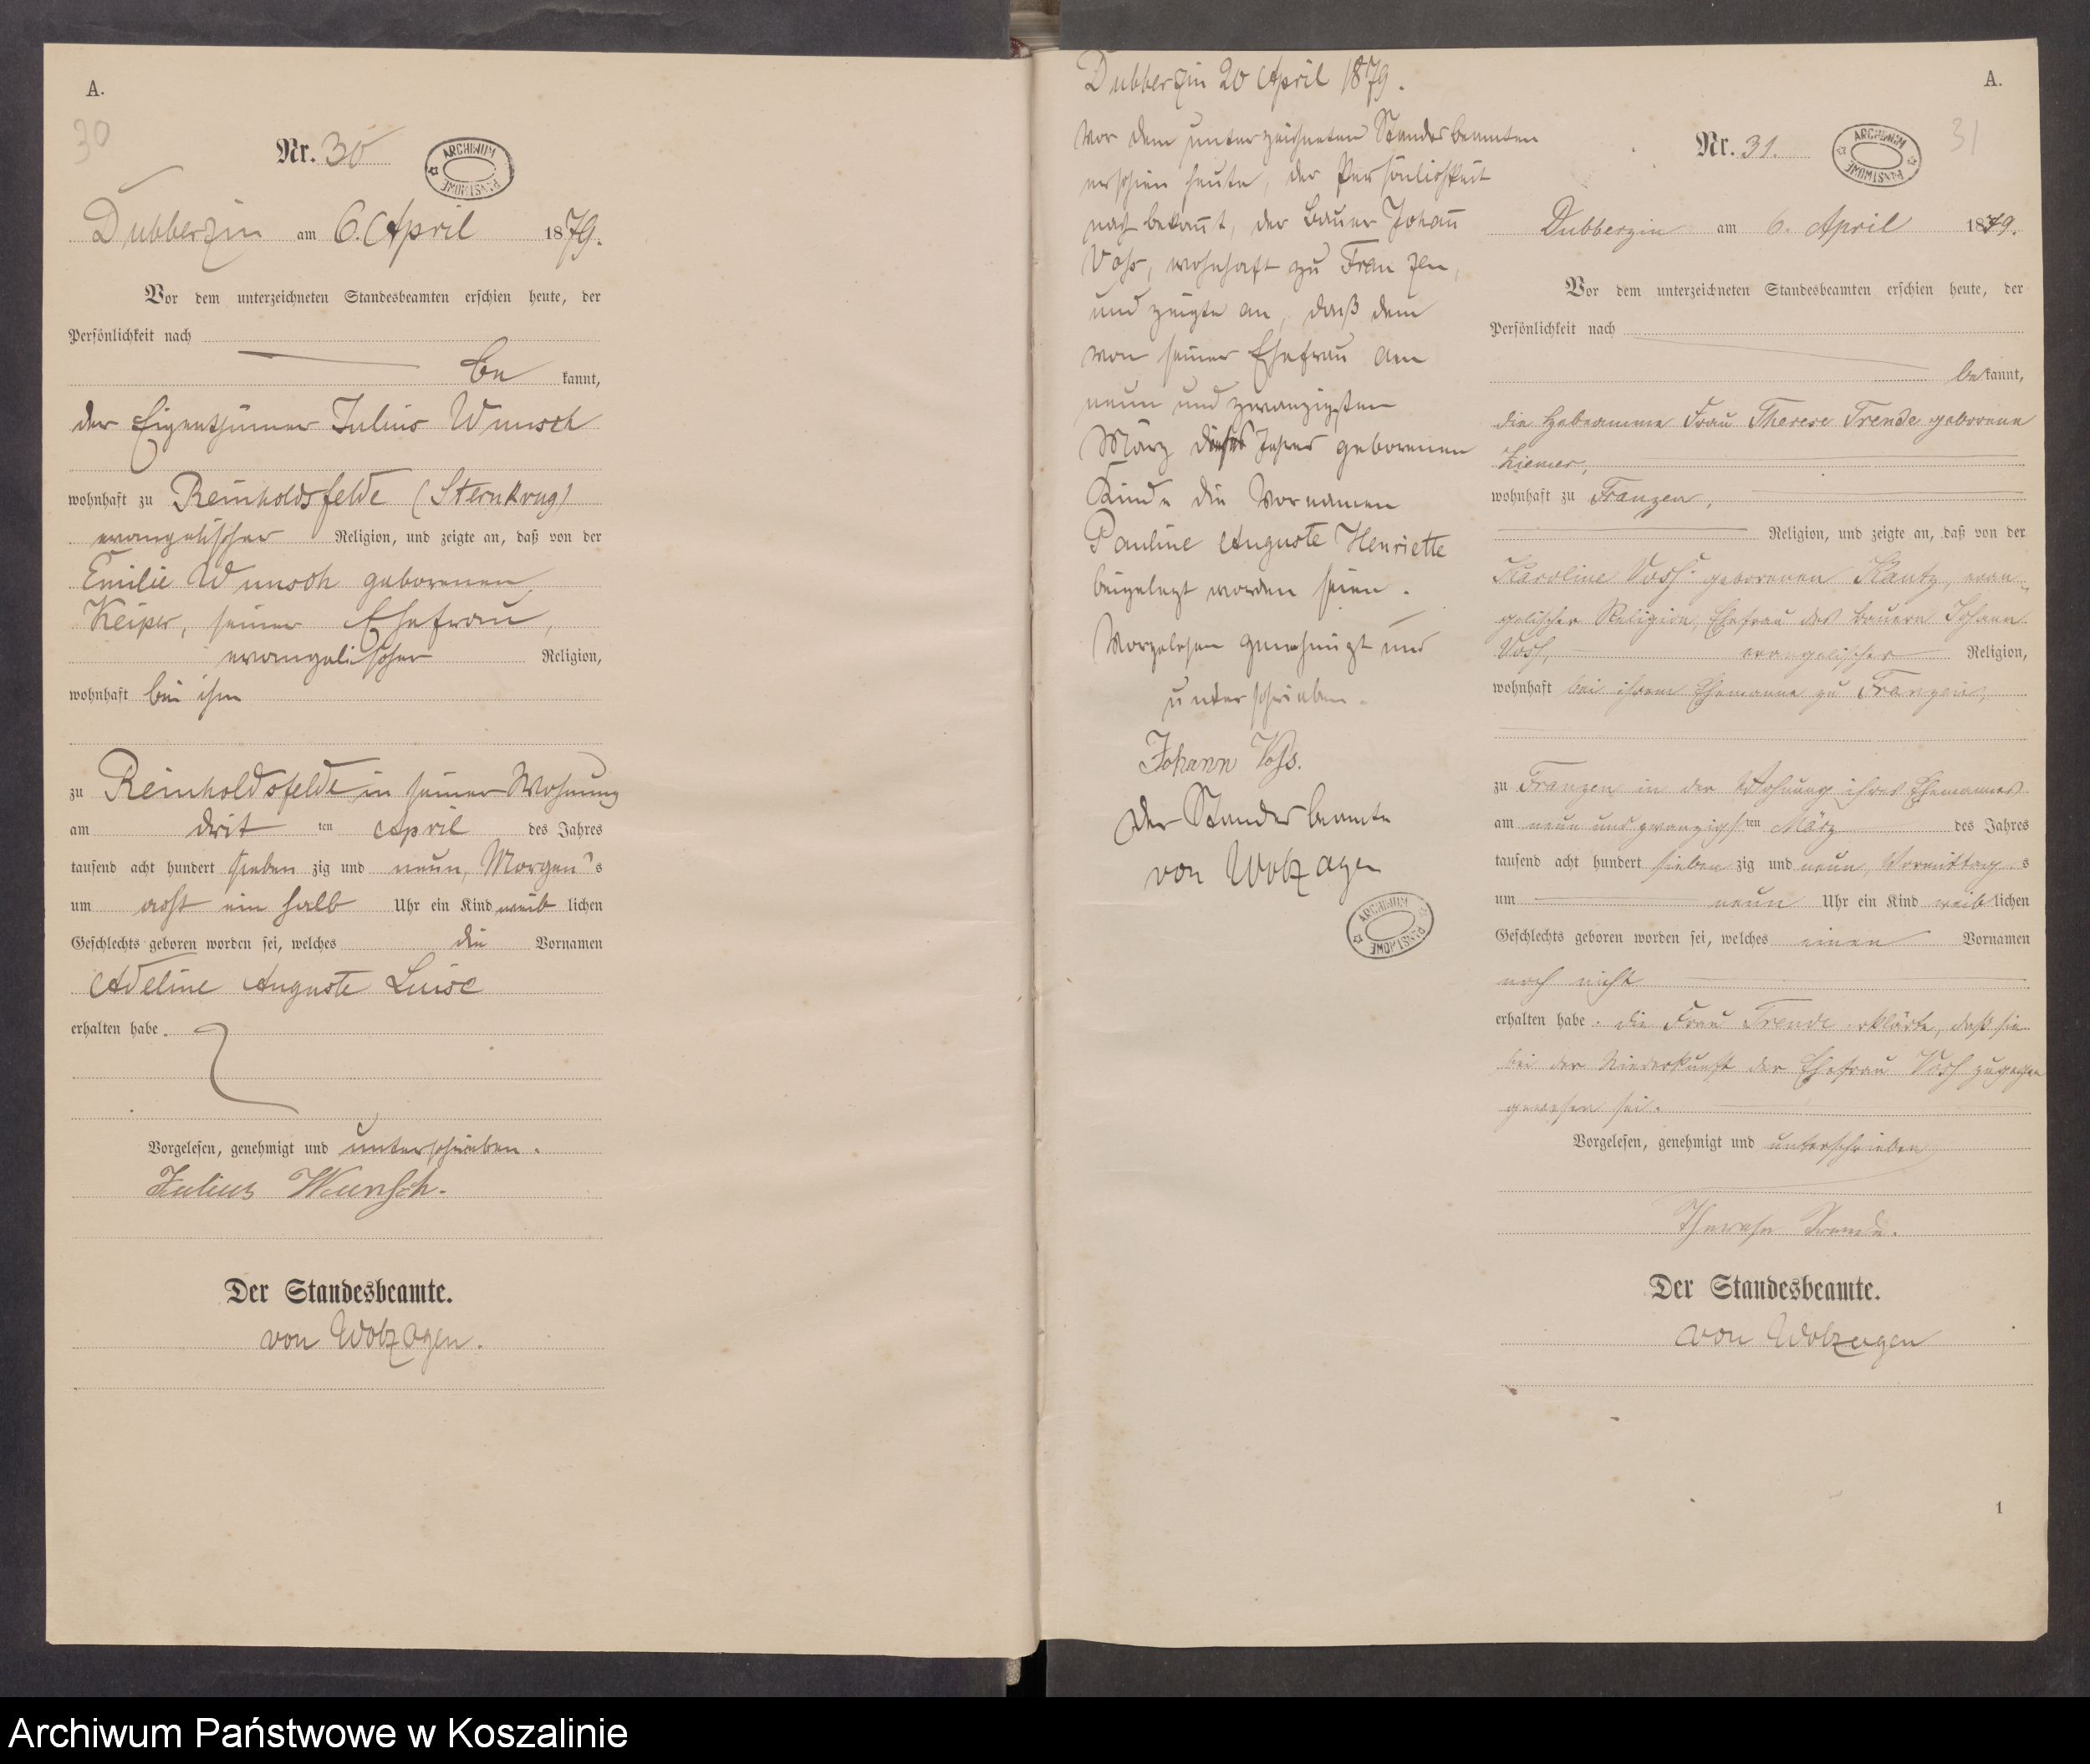 A.
30
Nr. 30
ARCHIWUM PAŃSTWOWE
Dubberzin am 6. April 1879.
Vor dem unterzeichneten Standesbeamten erschien heute, der
Persönlichkeit nach
be kannt,
der Eigenthümer Julius Wunsch
wohnhaft zu Reinholdsfelde (Sternkrug)
evangelischer Religion, und zeigte an, daß von der
Emilie Wunsch geborenen
Keiper, seiner Ehefrau,
evangelischer Religion,
wohnhaft bei ihm
zu Reinholdsfelde in seiner Wohnung
am drit ten April des Jahres
tausend acht hundert sieben zig und neun, Morgen's
um acht ein halb Uhr ein Kind weib lichen
Geschlechts geboren worden sei, welches die Vornamen
Adeline Auguste Luise
erhalten habe.
Vorgelesen, genehmigt und unterschrieben.
Julius Wunsch.
Der Standesbeamte.
von Wolzogen.
Dubberzin 20 April 1879.
Vor dem unterzeichneten Standesbeamten
erschien heute, der Persönlichkeit
nach bekan̅t, der Bauer Johan̅
Voss, wohnhaft zu Franzen,
und zeigte an, daß dem
von seiner Ehefrau am
neun und zwanzigsten
März dieses Jahres geborenen
Kinde die Vornamen
Pauline Auguste Henriette
beigelegt worden seien.
Vorgelesen genehmigt und
unterschrieben.
Johann Voss.
Der Standesbeamte
von Wolzogen
ARCHIWUM PAŃSTWOWE
A.
31
Nr. 31.
ARCHIWUM PAŃSTWOWE
Dubberzin am 6. April 1879.
Vor dem unterzeichneten Standesbeamten erschien heute, der
Persönlichkeit nach
be kannt,
die Hebeamme Frau Therese Trende geborene
Ziemer,
wohnhaft zu Franzen,
Religion, und zeigte an, daß von der
Karoline Voss geborenen Kautz, evan-
gelischer Religion, Ehefrau des Bauern Johann
Voss, evangelischer Religion,
wohnhaft bei ihrem Ehemanne zu Franzen,
zu Franzen in der Wohnung ihres Ehemannes
am neun und zwanzigs ten März des Jahres
tausend acht hundert sieben zig und neun, Vormittag s
um neun Uhr ein Kind weib lichen
Geschlechts geboren worden sei, welches einen Vornamen
noch nicht
erhalten habe. Die Frau Trende erklärte, daß sie
bei der Niederkunft der Ehefrau Voss zugegen
gewesen sei.
Vorgelesen, genehmigt und unterschrieben
Therese Trende.
Der Standesbeamte.
von Wolzogen
1
Archiwum Państwowe w Koszalinie